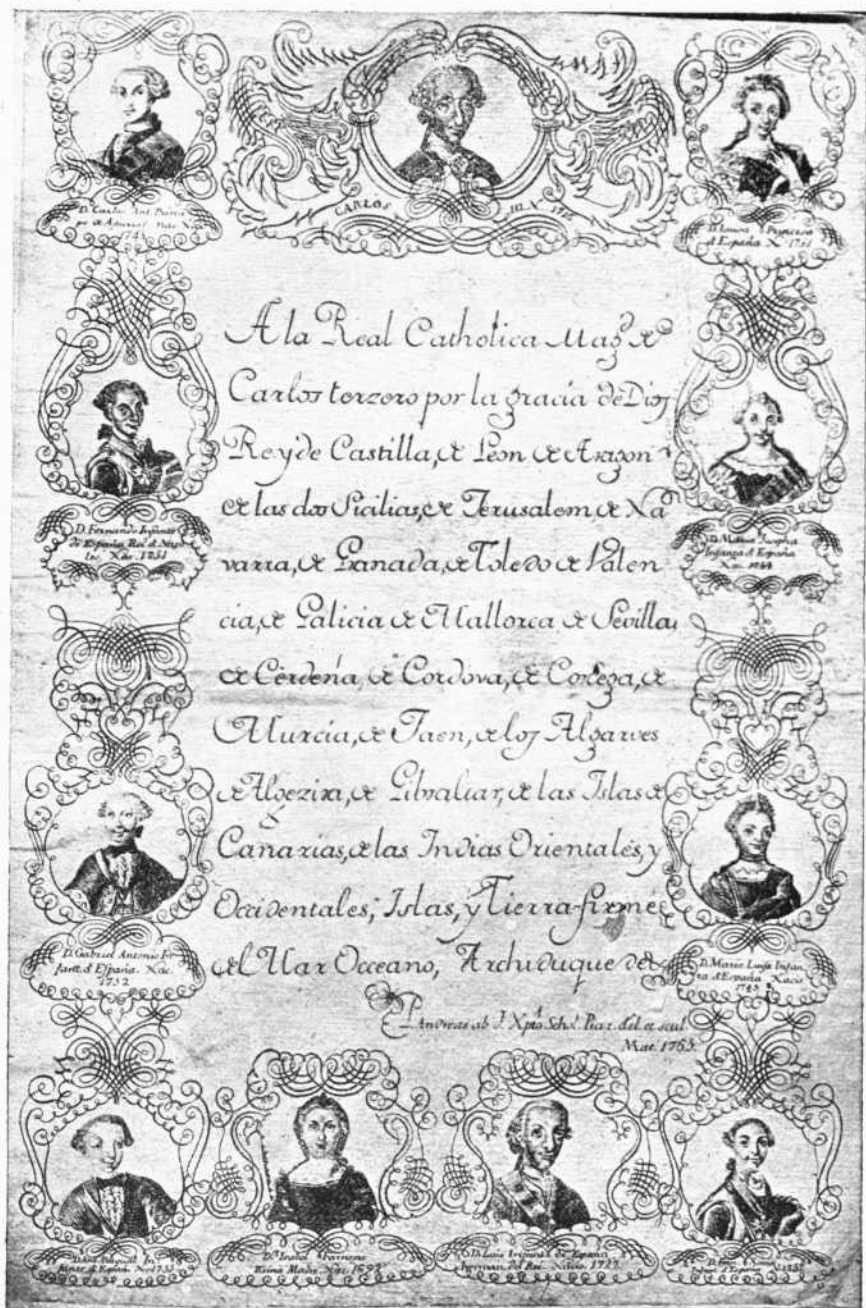 CARLOS III. N. 1716
D. Carlos Ant. Princi
pe de Asturias Nac.
1748
D. Luisa Princesa
d España N. 1751
A la Real Catholica Mag.d de
Carlos terzero por la gracia de Dios
Rey de Castilla, de Leon de Aragon
de las dos Sicilias, de Jerusalem de Na
varra, de Granada, de Toledo de Valen
cia, de Galicia de Mallorca de Sevilla,
de Cerdeña, de Cordova, de Corzega, de
Murcia, de Jaen, de los Algarves
de Algezira, de Gibraltar, de las Islas de
Canarias, de las Indias Orientales, y
Occidentales, Islas, y Tierra-firme
del Mar Occeano, Archiduque de
Andreas ab J. Xpto Schol. Piar. del. et scul.
Mat. 1765.
D. Fernando Infante
de España Rei d Napo
les. Nac. 1751
D. Maria Josepha
Infanta d España
Nac. 1744
D. Gabriel Antonio In
fant. d España. Nac.
1752
D. Maria Luisa Infan
ta d España Nacio
1745
D. Ant. Pasqual In
fante d España Nac 1755
D.a Isabel Farnesio
Reina Madre Nac. 1692
D. Luis Infante de España
hermano del Rei. Nacio. 1727
D. Fran. Xavier
Infant d España N. 1757